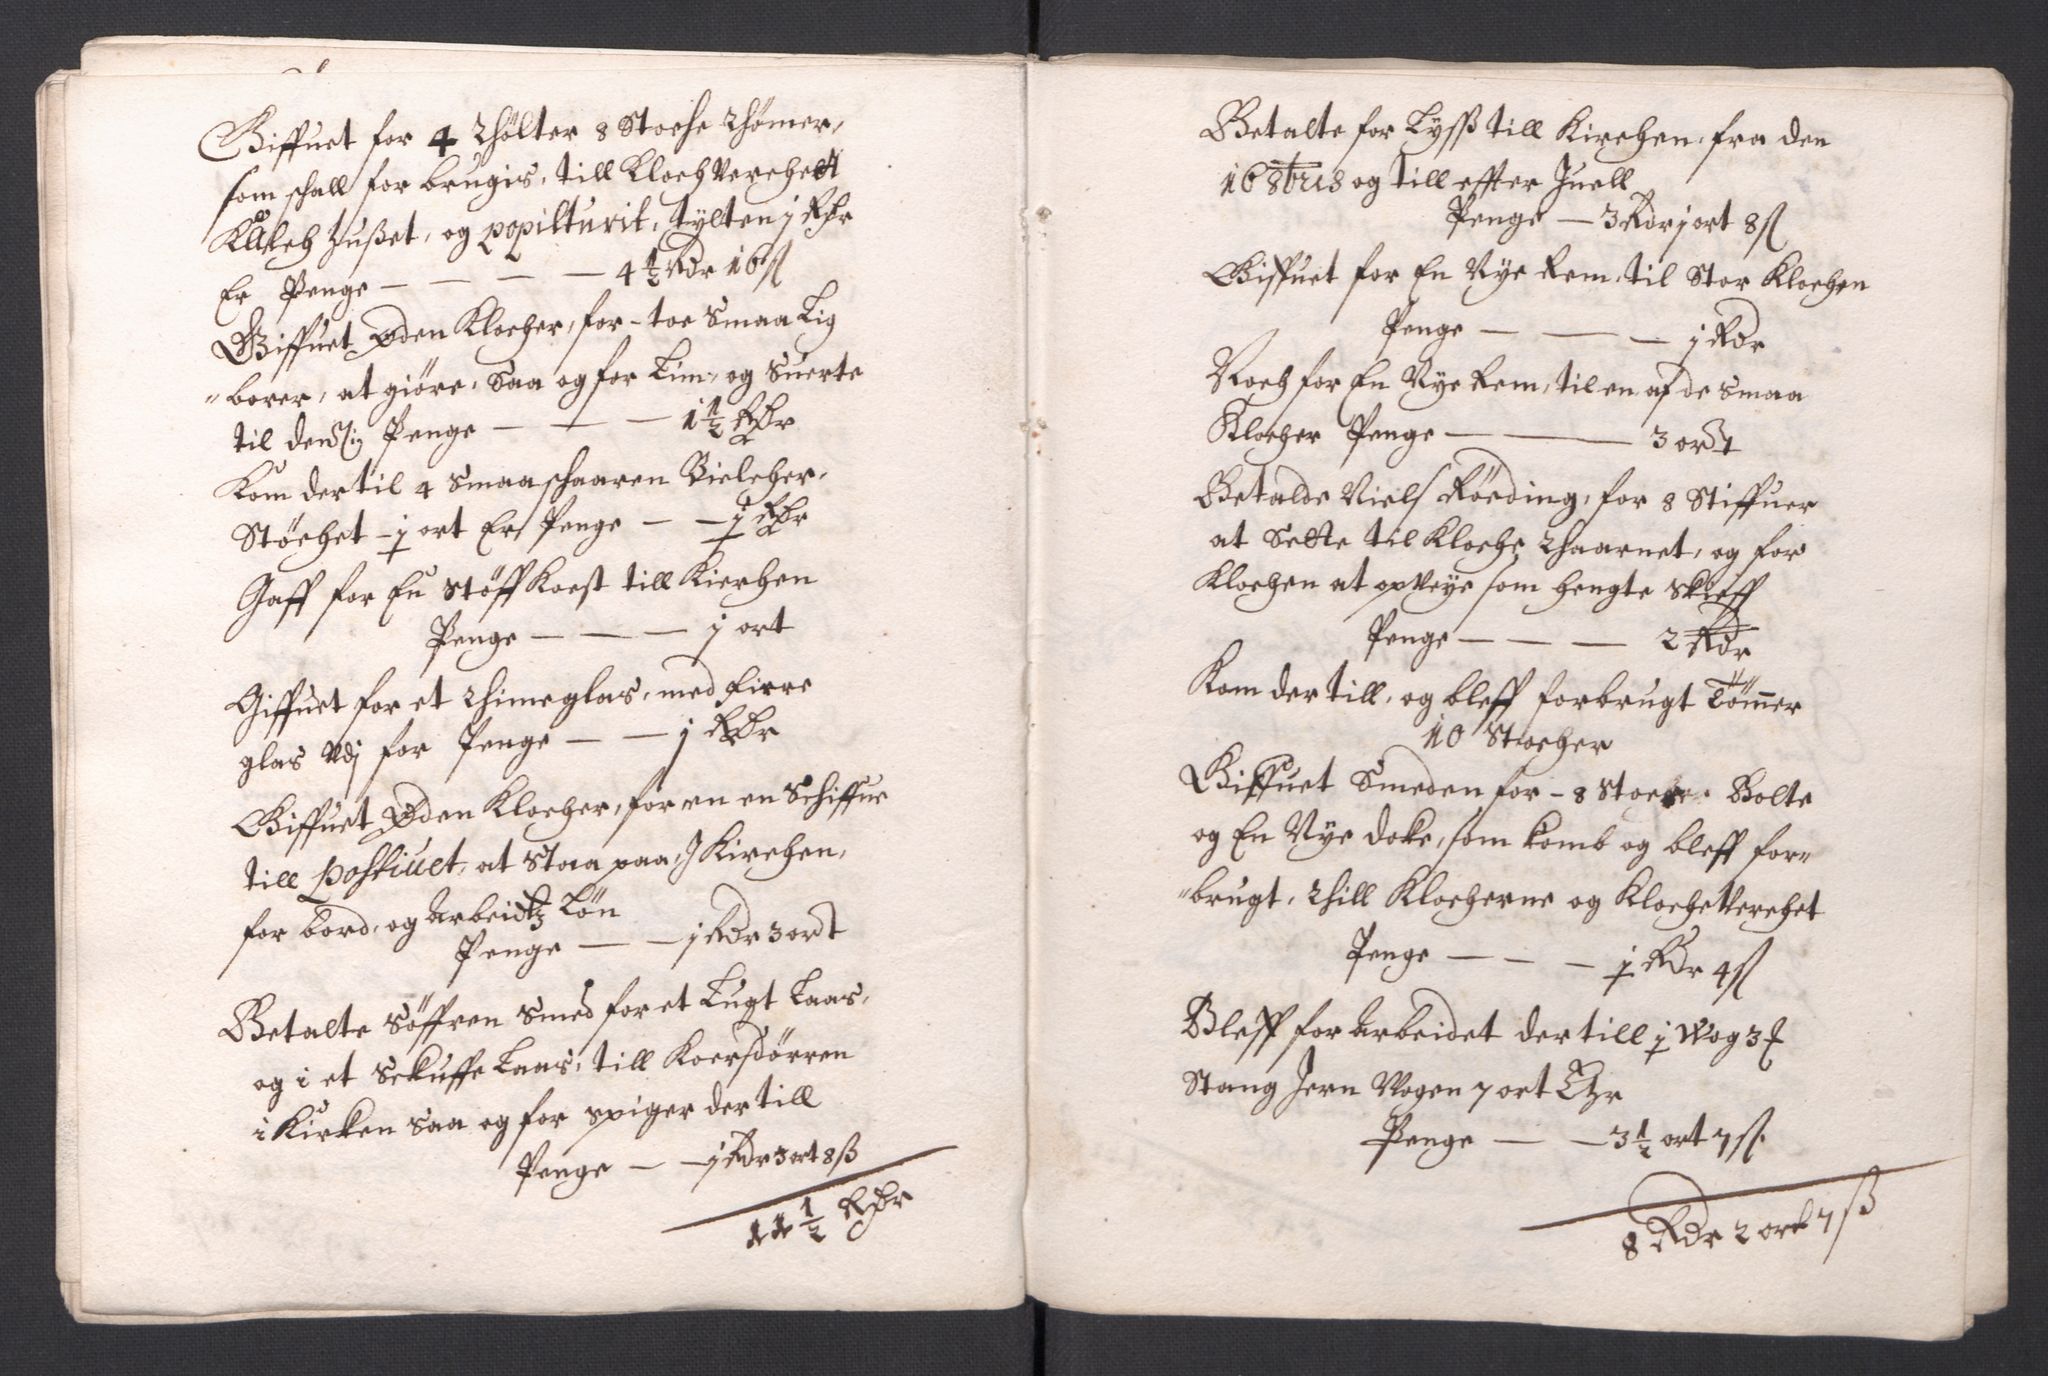 Giffuet for 4 Thölter 8 Stoche Thömer,
som schall for brugis, till Kloch Verchett
Klokch Hußet, og popilturit, tylten j Rdr
Er Penge — — — — 4½ Rdr 16 ß
Giffuet Oden Klocher, for - toe Smaa Lig
"borer, at giöre, Saa og for Lim, og Suerte
til den Penge — — — 1½ Rdr
Kom der til 4 Smaa schaaren Bielcher,
Stöchet - j ort Er Penge — — j Rdr
Gaff for En Stöff Koest till Kierchen
Penge — — — j ort
Giffuet for et Thimeglas, med firre
glas vdj for Penge — — j Rdr
Giffuet Oden Klocher, for en en Schiffue
till Poshiuet, at Staa paa, J Kirchen,
for bord, og Arbeidtz Lön
Penge — — j Rdr 3 ort
Betalte Söffren Smed for et Lugt Laas,
og i et Sckuffe Laas, till Koersdörren
i Kirken Saa og for Spiger der till
Penge — — j Rdr 3 ort 8 ß
11½ Rdr
Betalte for Lyss till Kirchen, fra den
16 8bris og till effter Juell
Penge — 3 Rdr j ort 8 ß
Giffuet for En Nye Rem, til Stor Klochen
Penge — — — j Rdr
Noch for En Nye Rem, til en af de Smaa
Klocher Penge — — 3 ort
Betalde Niels Röeding, for 8 Stiffuer
at Sette til Kloche Thaarnet, og for
Klochen at opVeye som hengte Skieff
Penge — — — 2 Rdr
Kom der till, og bleff forbrugt Tömer
10 Stöcher
Giffuet Smeden for - 8 Stoeker Bolte
og En Nye doke, som komb og bleff for=
"brugt, Thill Klocherne og Kloche Verchet
Penge — — — j Rdr 4 ß
Bleff for Arbeidet der till j Wog 3
Stang Jern Wogen 7 ort Er
Penge — — 3½ ort 7 ß.
8 Rdr 2 ort 7 ß